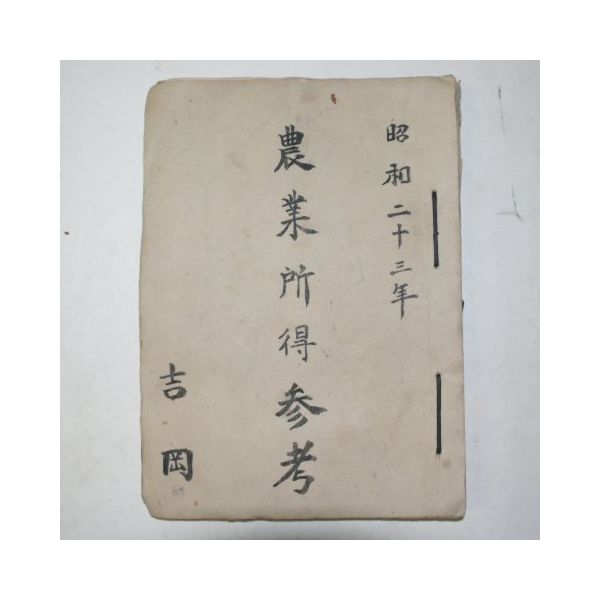 昭和二十三年
農業所得参考
吉岡